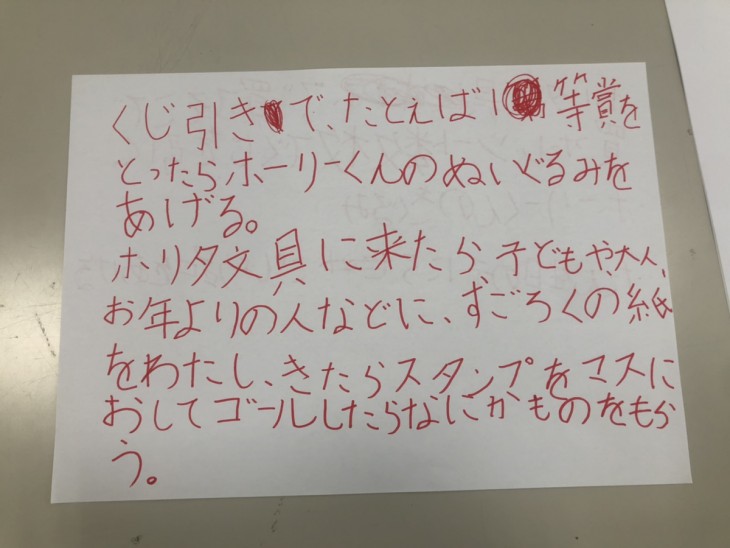 くじ引きで、たとえば1等賞を
とったらホーリーくんのぬいぐるみを
あげる。
ホリタ文具に来たら子どもや大人、
お年よりの人などに、すごろくの紙
をわたし、きたらスタンプをマスに
おしてゴールしたらなにかものをもら
う。